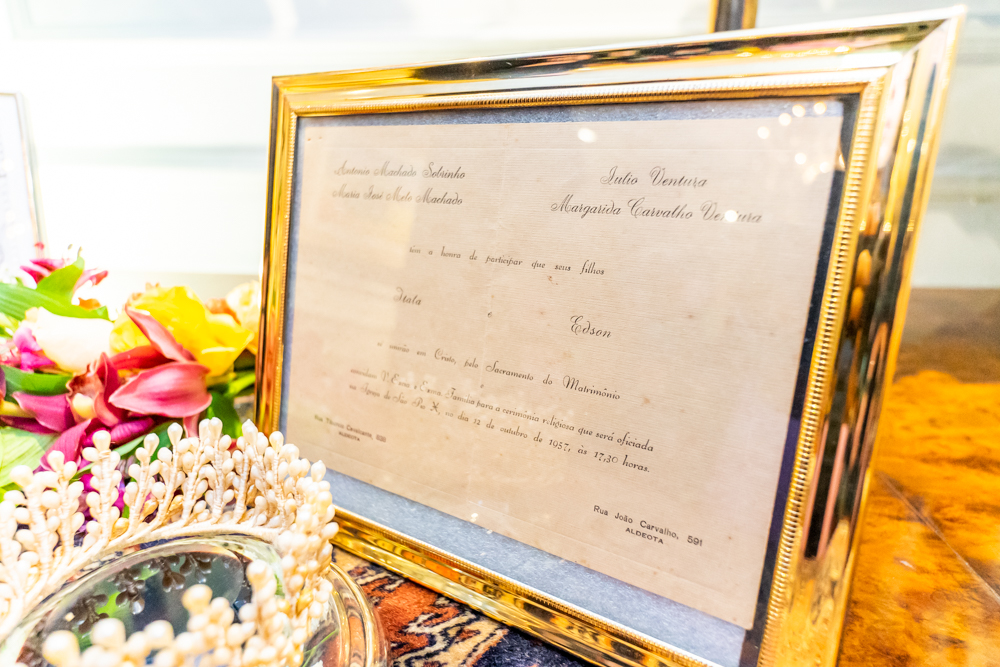 Antonio Machado Sobrinho
Maria José Melo Machado
Julio Ventura
Margarida Carvalho Ventura
têm a honra de participar que seus filhos
Itala
e
Edson
se unirão em Cristo, pelo Sacramento do Matrimônio
e
convidam V. Excia. e Exma. Família para a cerimônia religiosa que será oficiada
na Igreja de São Pio X, no dia 12 de outubro de 1957, às 17,30 horas.
Rua Tibúrcio Cavalcante,
ALDEOTA
Rua João Carvalho, 591
ALDEOTA